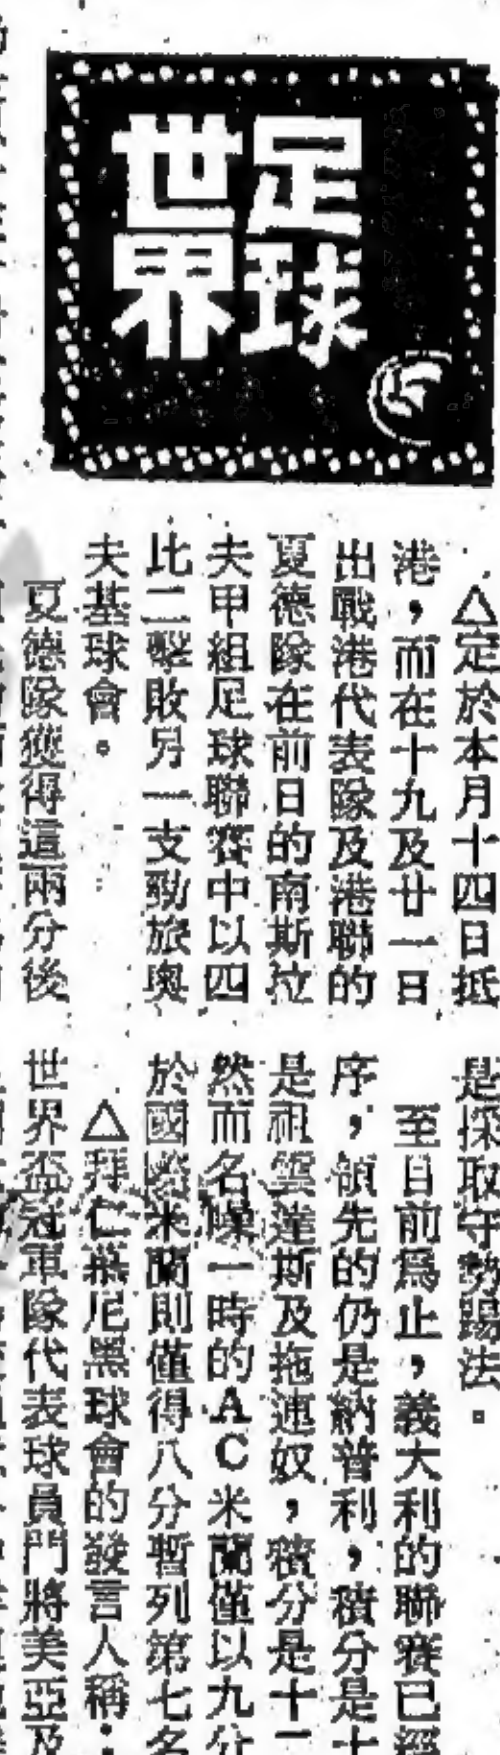 足球
世界
△定於本月十四日抵
港，而在十九及廿一日
出戰港代表隊及港聯的
夏德隊在前日的南斯拉
夫甲組足球聯賽中以四
比二擊敗另一支勁旅奧
夫基球會。
夏德隊獲得這兩分後
是採取守勢踢法。
至目前爲止，義大利的聯賽已經
序，領先的仍是納普利，積分是十
是祖雲達斯及拖連奴，積分是十二
然而名噪一時的AC米蘭僅以九分
於國際米蘭則僅得八分暫列第七名
△拜仁慕尼黑球會的發言人稱：
世界盃冠軍隊代表球員門將美亞及